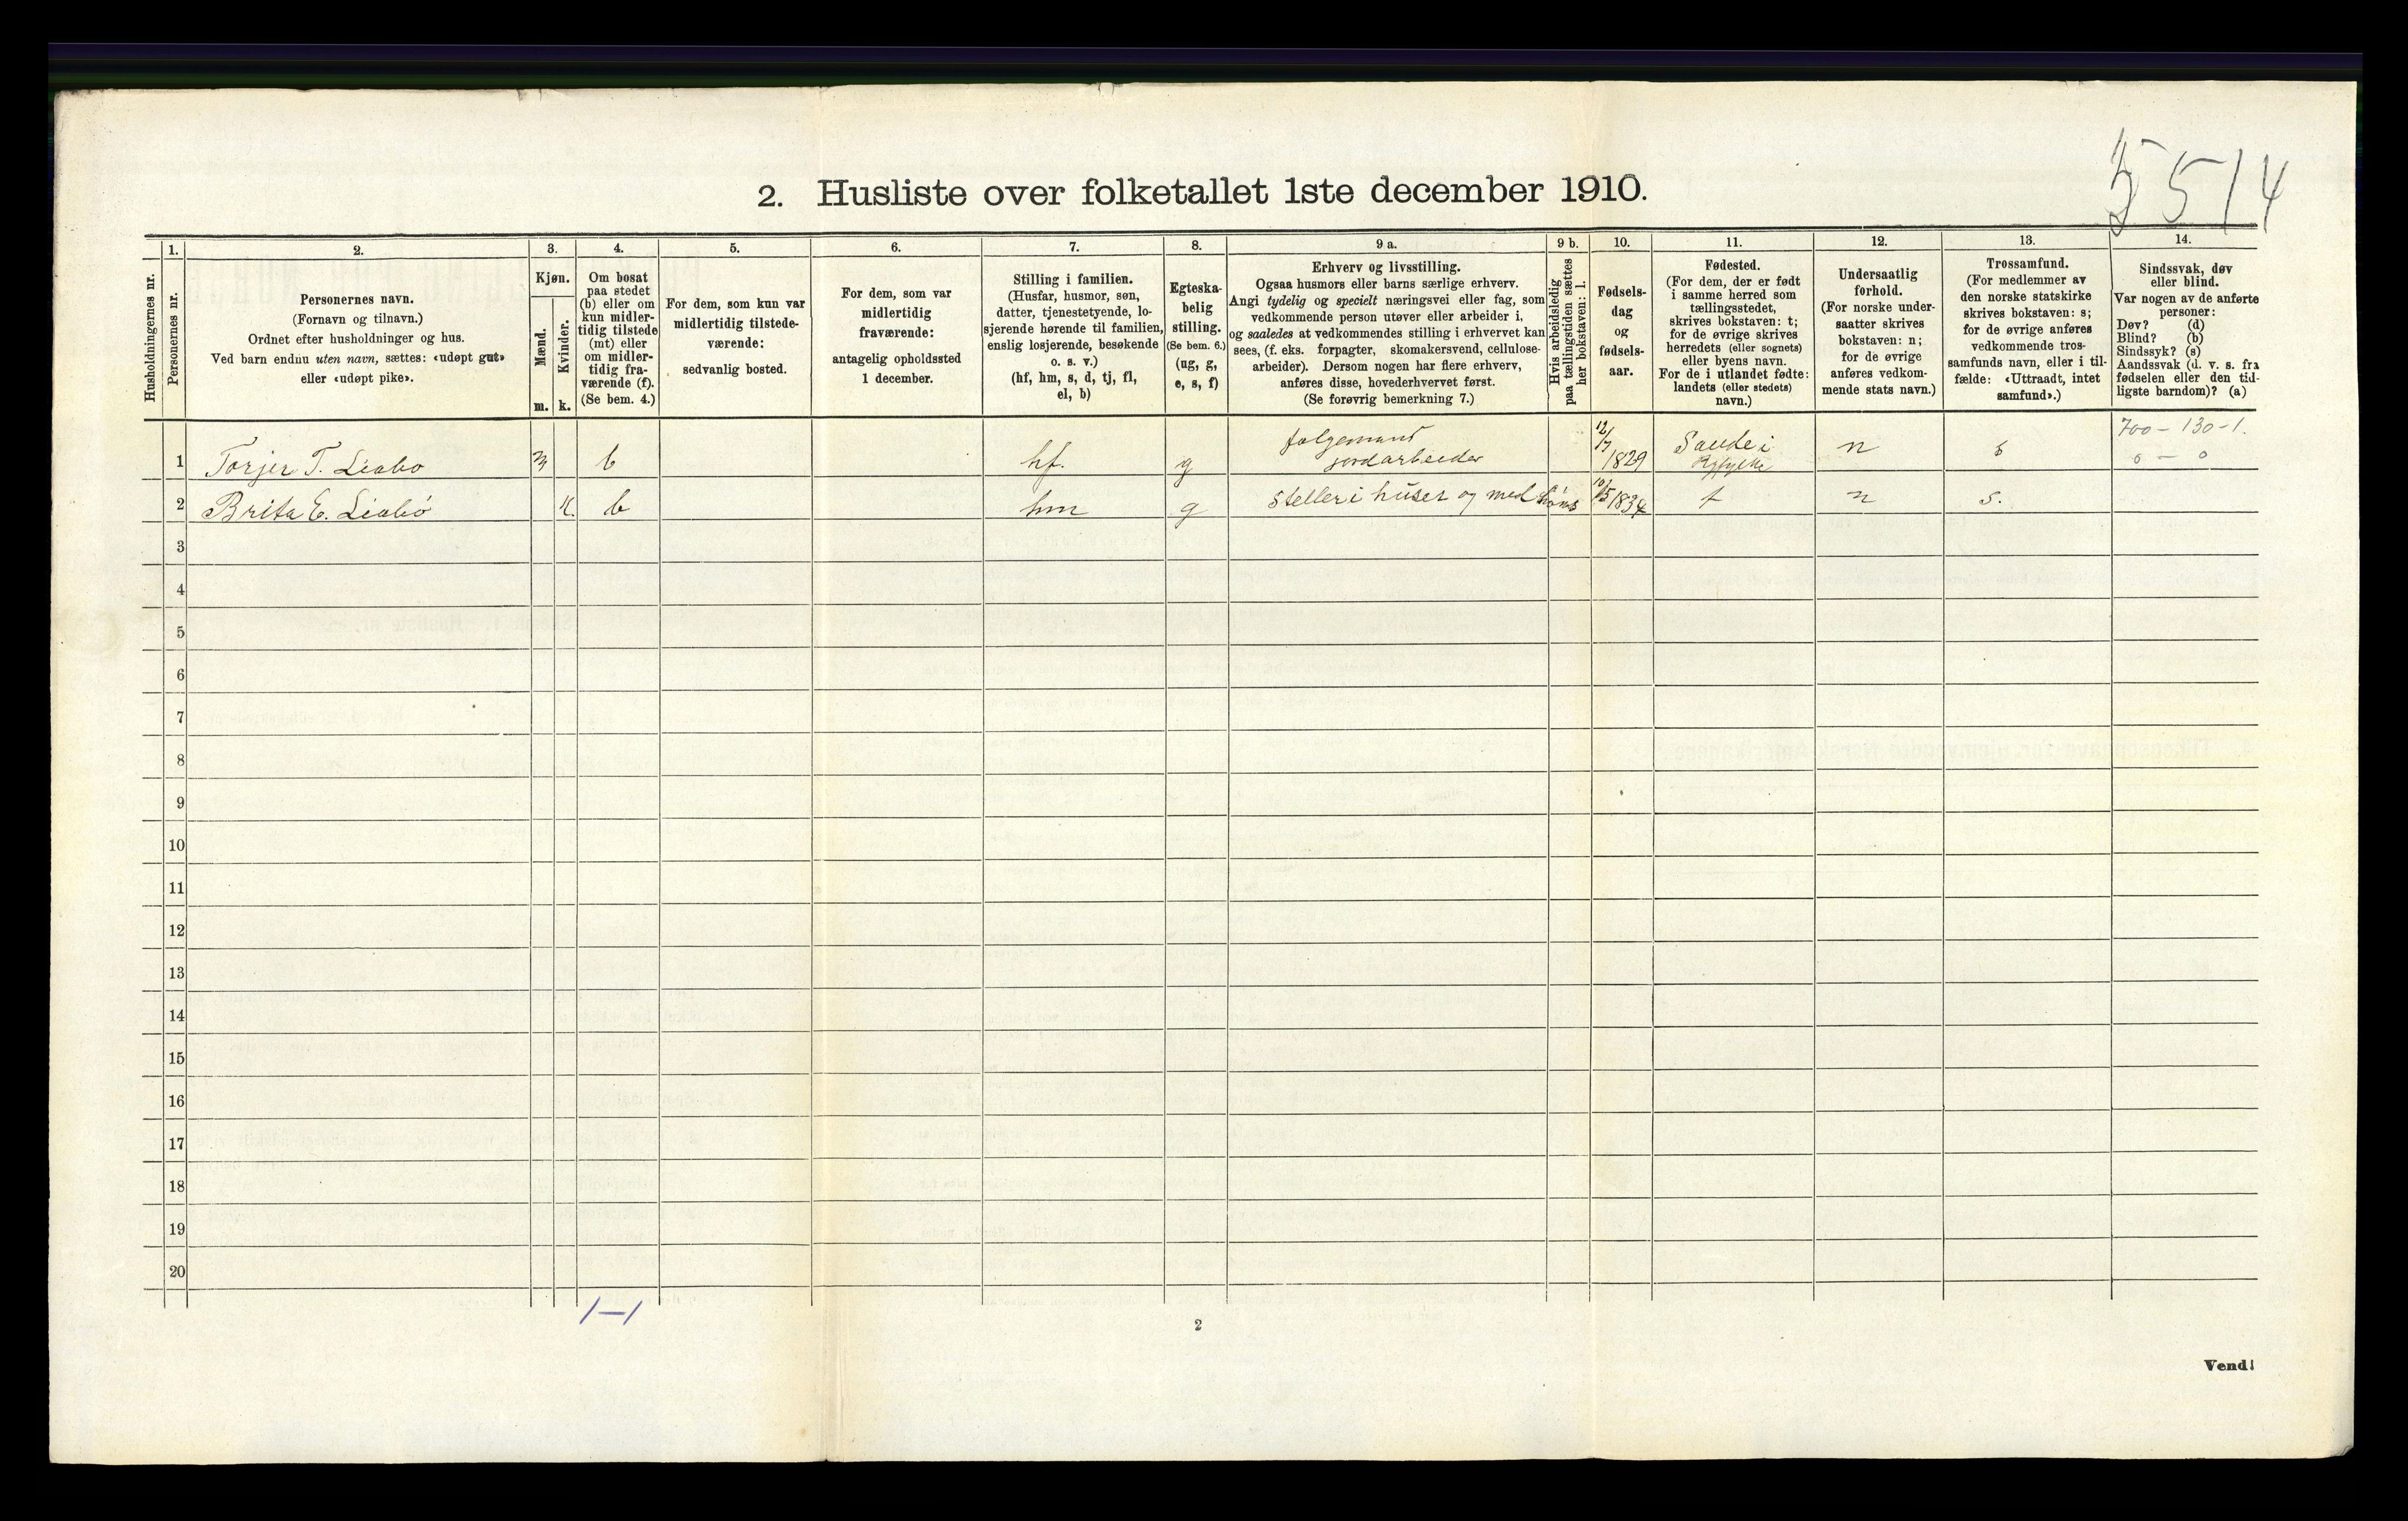 5514
2. Husliste over folketallet 1ste december 1910.
Husholdningernes nr.
1.
Personernes nr.
2.
Personernes navn.
(Fornavn og tilnavn.)
Ordnet efter husholdninger og hus.
Ved barn endnu uten navn, sættes: «udøpt gut»
eller «udøpt pike».
3.
Kjøn.
Mænd.
Kvinder.
m. k.
4.
Om bosat
paa stedet
(b) eller om
kun midler-
tidig tilstede
(mt) eller
om midler-
tidig fra-
værende (f).
(Se bem. 4.)
5.
For dem, som kun var
midlertidig tilstede-
værende:
sedvanlig bosted.
6.
For dem, som var
midlertidig
fraværende:
antagelig opholdssted
1 december.
7.
Stilling i familien.
(Husfar, husmor, søn,
datter, tjenestetyende, lo-
sjerende hørende til familien,
enslig losjerende, besøkende
o. s. v.)
(hf, hm, s, d, tj, fl,
el, b)
8.
Egteska-
belig
stilling.
(Se bem. 6.)
(ug, g,
e, s, f)
9 a.
Erhverv og livsstilling.
Ogsaa husmors eller barns særlige erhverv.
Angi tydelig og specielt næringsvei eller fag, som
vedkommende person utøver eller arbeider i,
og saaledes at vedkommendes stilling i erhvervet kan
sees, (f. eks. forpagter, skomakersvend, cellulose-
arbeider). Dersom nogen har flere erhverv,
anføres disse, hovederhvervet først.
(Se forøvrig bemerkning 7.)
9 b.
Hvis arbeidsledig
paa tællingstiden sættes
her bokstaven: l.
10.
Fødsels-
dag
og
fødsels-
aar.
11.
Fødested.
(For dem, der er født
i samme herred som
tællingsstedet,
skrives bokstaven: t;
for de øvrige skrives
herredets (eller sognets)
eller byens navn.
For de i utlandet fødte:
landets (eller stedets)
navn.)
12.
Undersaatlig
forhold.
(For norske under-
saatter skrives
bokstaven: n;
for de øvrige
anføres vedkom-
mende stats navn.)
13.
Trossamfund.
(For medlemmer av
den norske statskirke
skrives bokstaven: s;
for de øvrige anføres
vedkommende tros-
samfunds navn, eller i til-
fælde: «Uttraadt, intet
samfund».)
14.
Sindssvak, døv
eller blind.
Var nogen av de anførte
personer:
Døv? (d)
Blind? (b)
Sindssyk? (s)
Aandssvak (d. v. s. fra
fødselen eller den tid-
ligste barndom)? (a)
700 - 130 - 1.
0 - 0
1 Torjer T. Liabø m b hf. g folgemand jordarbeider 12/7 1829 Saude i Ryfylke n s
2 Brita E. Liabø K. b hm g steller i huset og med høns 10/5 1834 t n s.
3
4
5
6
7
8
9
10
11
12
13
14
15
16
17
18
19
20
1-1
2
Vend!